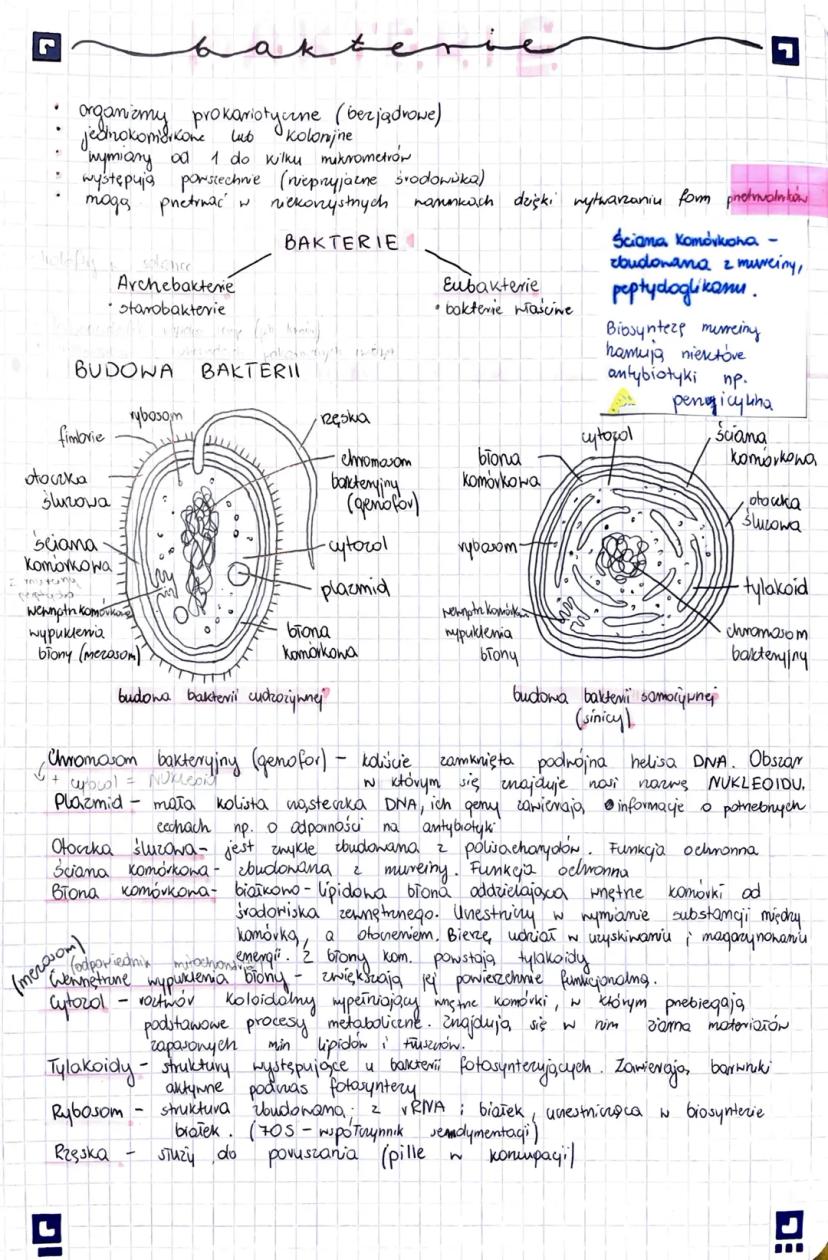 bakterie
• organizmy prokariotyczne (bezjądrowe)
• jednokomórkowe lub kolonijne
• wymiary od 1 do kilku mikrometrów
• występują powszechnie (nieprzyjazne środowiska)
• mogą przetrwać w niekorzystnych warunkach dzięki wytwarzaniu form przetrwalników
BAKTERIE
Archebakterie
• starobakterie
Eubakterie
• bakterie właściwe
Ściana komórkowa -
zbudowana z mureiny,
peptydoglikanu.
Biosyntezę mureiny
hamują niektóre
antybiotyki np.
BUDOWA BAKTERII
rybosom
fimbrie
otoczka
śluzowa
ściana
komórkowa
wewnątrzkomórkowe
wypuklenia
błony (mezosom)
rzęska
chromosom
bakteryjny
(genofor)
cytozol
plazmid
błona
komórkowa
budowa bakterii cudzożywnej
cytozol
błona
komórkowa
rybosom
wypuklenia
błony
ściana
komórkowa
otoczka
śluzowa
tylakoid
chromosom
bakteryjny
budowa bakterii samożywnej
(sinicy)
Chromosom bakteryjny (genofor) - koliście zamknięta podwójna helisa DNA. Obszar
+ cytozol = nukleoid
w którym się znajduje nosi nazwę NUKLEOIDU.
Plazmid - mała kolista cząsteczka DNA, ich geny zawierają informacje o potrzebnych
cechach np. o odporności na antybiotyki
Otoczka śluzowa - jest zwykle zbudowana z polisacharydów. Funkcja ochronna
Ściana komórkowa - zbudowana z mureiny. Funkcja ochronna
Błona komórkowa - białkowo-lipidowa błona oddzielająca wnętrze komórki od
środowiska zewnętrznego. Uczestniczy w wymianie substancji między
komórką, a otoczeniem. Bierze udział w uzyskiwaniu i magazynowaniu
energii. Z błony kom. powstają tylakoidy
(mezosom) (odpowiednik mitochondria)
Wewnętrzne wypuklenia błony - zwiększają jej powierzchnie funkcjonalną.
Cytozol - roztwór koloidalny wypełniający wnętrze komórki, w którym przebiegają
podstawowe procesy metaboliczne. Znajdują się w nim ziarna materiałów
zapasowych min lipidów i tłuszczów.
Tylakoidy - struktury występujące u bakterii fotosyntezujących. Zawierają barwniki
aktywne podczas fotosyntezy
Rybosom - struktura zbudowana z rRNA i białek, uczestnicząca w biosyntezie
białek. (70S - współczynnik sendymentacji)
Rzęska - służy do poruszania (pille w koniupacji)